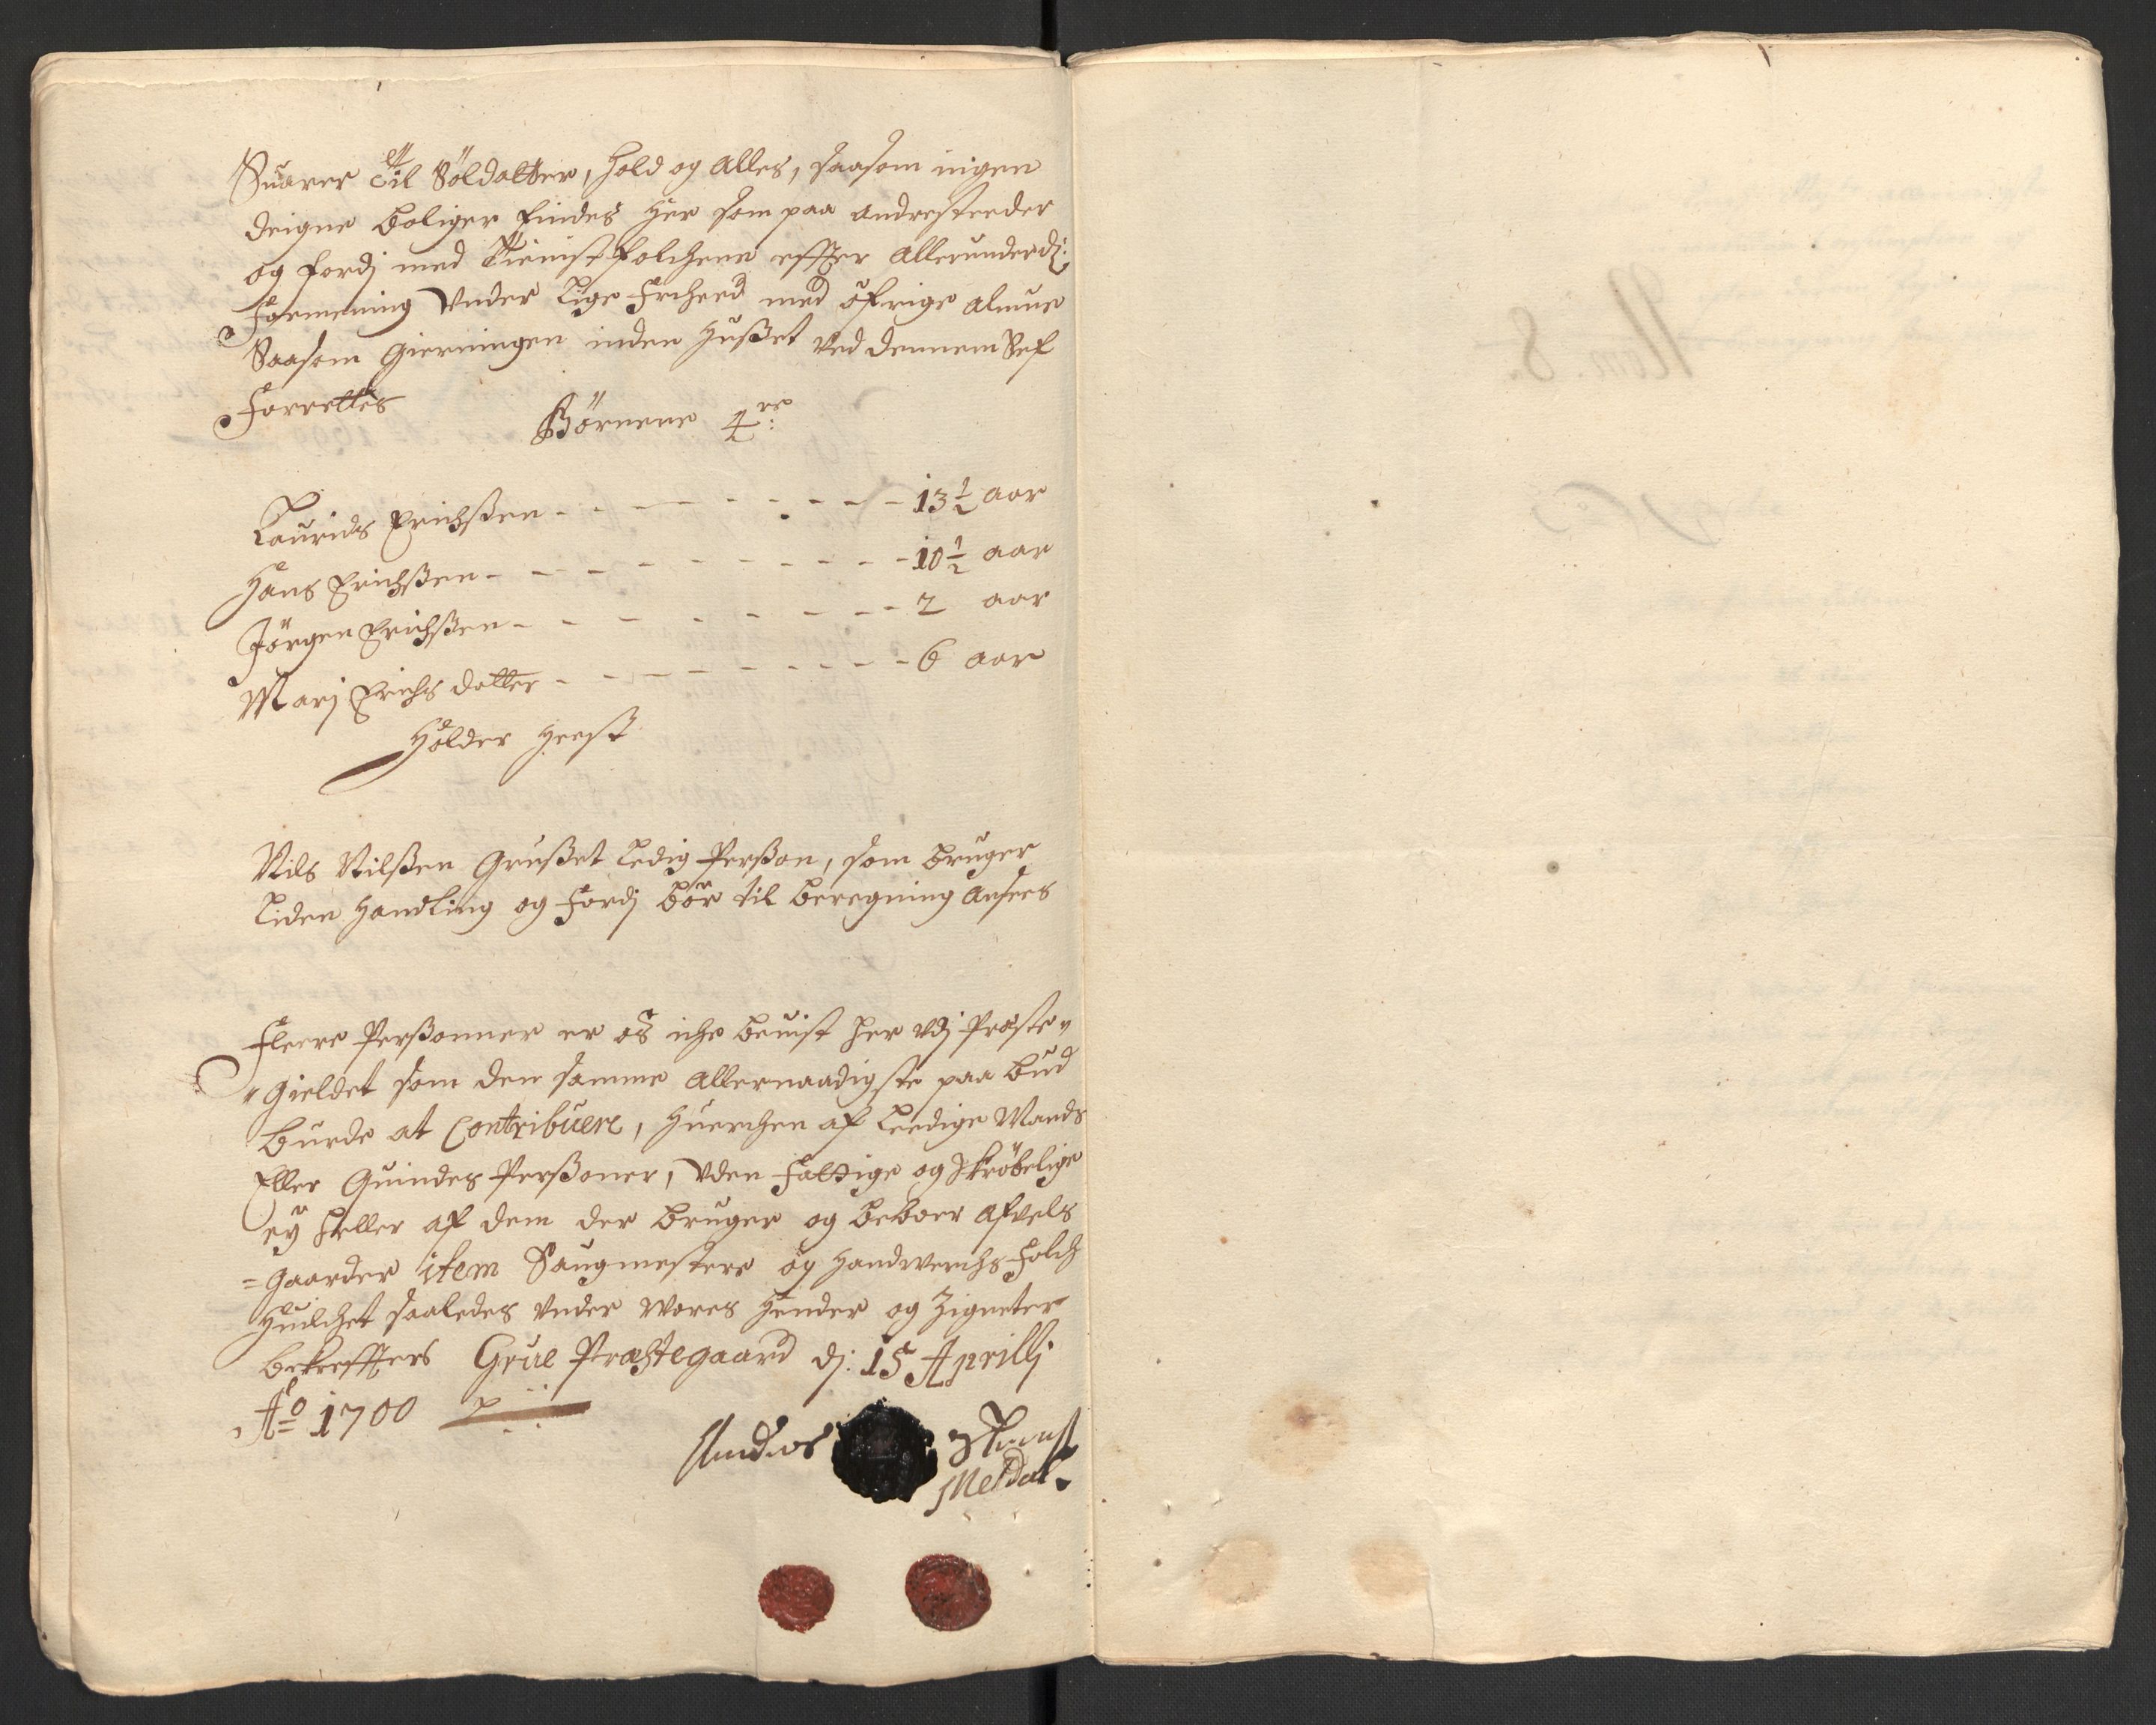 Suarer til et Söldatter, hold og alles, saasom ingen
deigne boliger findes her som paa andresteeder
og fordj med tienistfolchene effter allerunderdj:
formening under lige friheed med öfrige almue
Saasom gierningen inden huset ved dennem Self
forrettes
Börnene 4re:
Laurids Erichßen - - - 13½ aar
Hans Erichßen - - - 10½ aar
Jörgen Erichßen - - - 2 aar
Marj Erichs datter - - - 6 aar
Holder Heest
Nils Nilßen Grußet ledig Perßon, som bruger
liden handling og fordj bör til beregning ansees
Fleere Perßonner er oß iche beuist her udj Præste
gieldet som den samme allernaadigste paabud
burde at Contribuere, huerchen af leedige Mands
Eller Quindes Perßoner, uden fattige og skröbelige
ey heller af dem der bruger og beboer afvels
gaarder item Saugmestere og handwerchs folch
huilchet saaledes under wores hender og Zigneter
bekreffters Grue Præstegaard dj: 15 Aprillj
Ao 1700
Andres
Meldal
Nom. 8